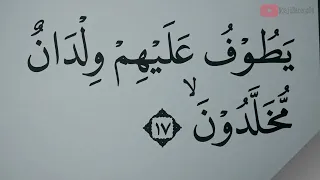 يَطُوْفُ عَلَيْهِمْ وِلْدَانٌ
مُّخَلَّدُوْنَۙ ١٧